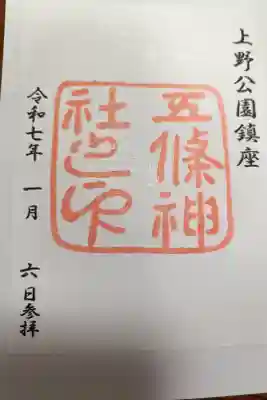 上野公園鎮座
五條神
社之印
令和七年 一月 六日参拝